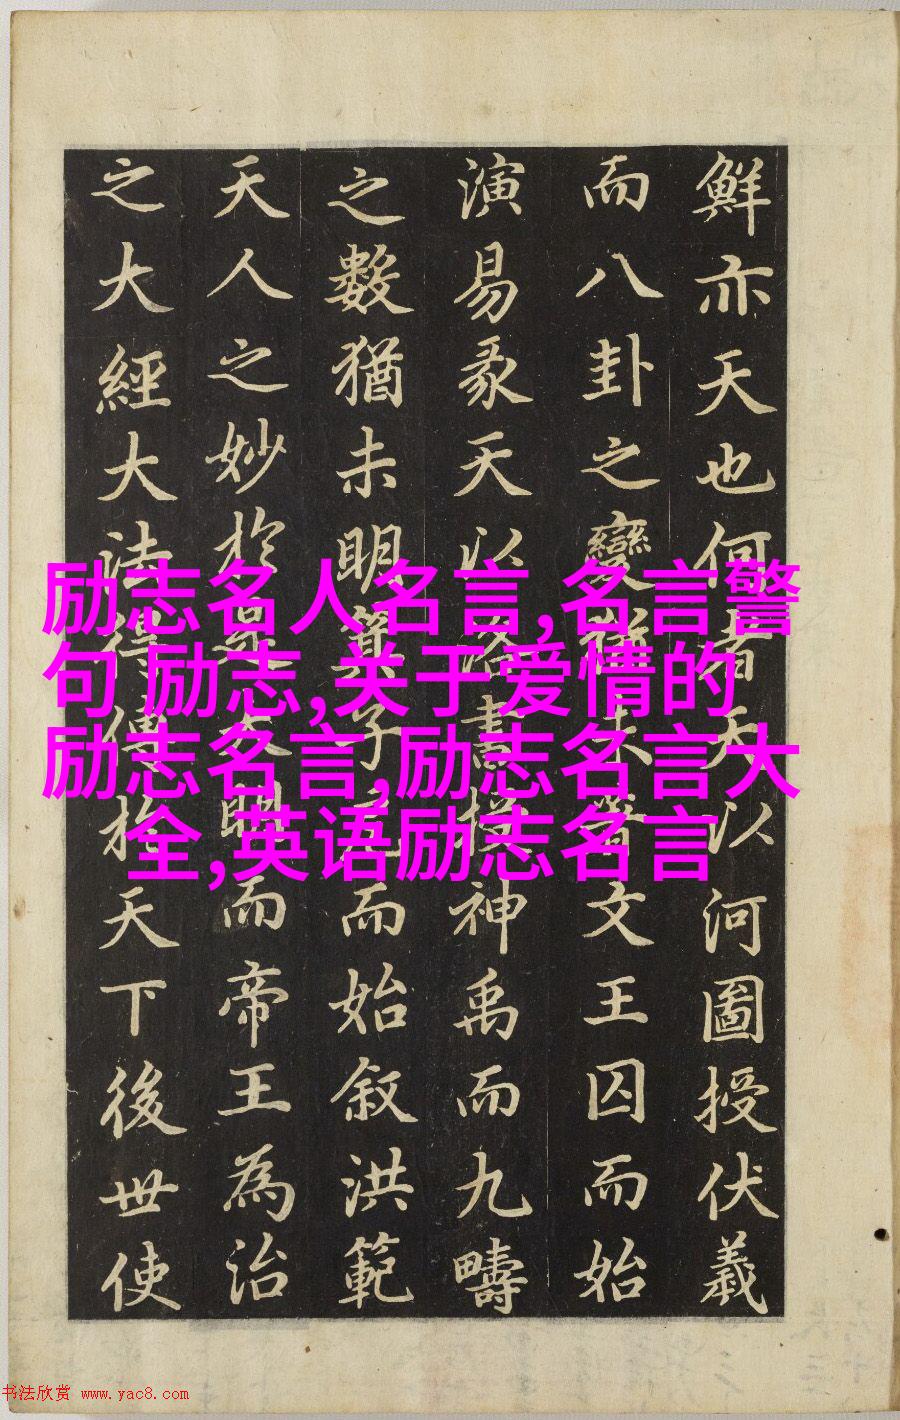 鮮亦天也何者天以河圖授伏羲
而八卦之變猶未文王囚而始
演易彖天以洛書授神禹而九疇
之數猶未明箕子而始叙洪範
天人之妙於是大明而帝王為治
之大經大法得傳於天下後世使
励志名人名言,名言警
句 励志,关于爱情的
励志名言,励志名言大
全,英语励志名言
书法欣赏 www.yac8.com